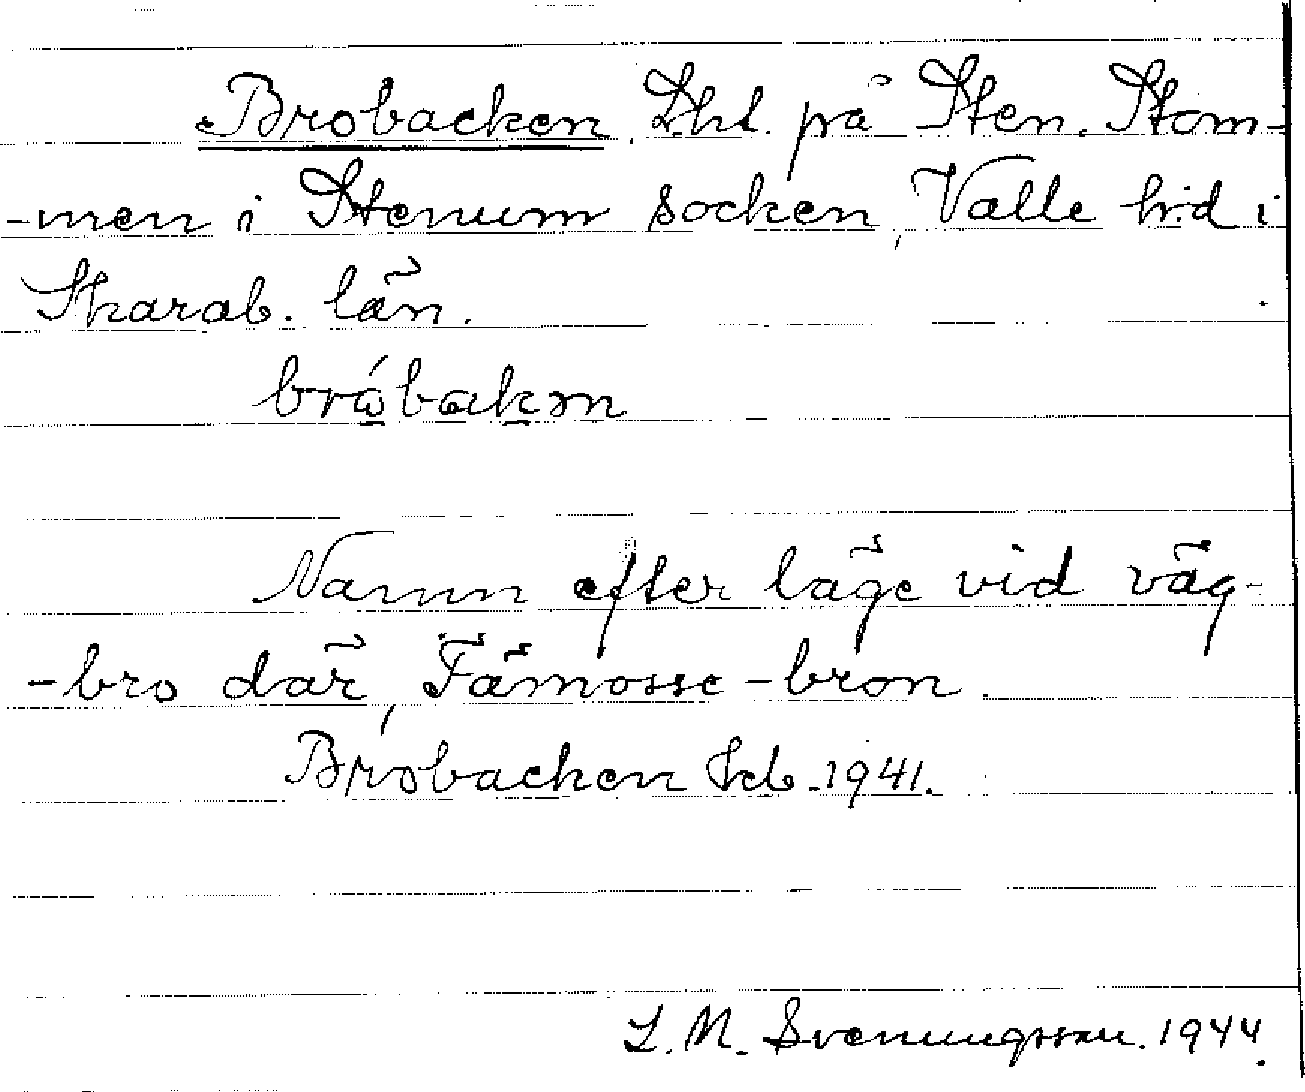 Brobacken. Lht. på Sten. Stom-
-men i Stenum socken, Valle hrd i
Skarab. län.
bròbakm
Namn efter läge vid väg-
-bro där, Fämosse-bron
Brobacken Jeb. 1941.
L. M. Svenungsson. 1944.